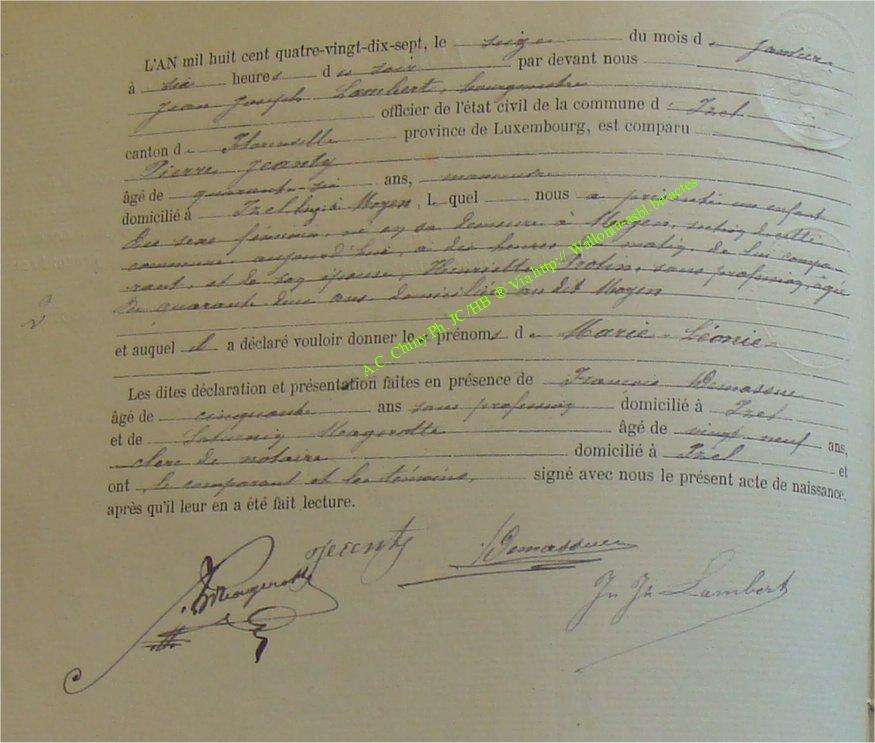 L'AN mil huit cent quatre-vingt-dix-sept, le seize du mois de janvier
à six heures du soir par devant nous
Jean Joseph Lambert, bourgmestre
officier de l'état civil de la commune d' Izel
canton de Florenville province de Luxembourg, est comparu
Pierre Jeanty
âgé de quarante six ans, manoeuvre
domicilié à Izel lez à Moyen, lequel nous a présenté un enfant
du sexe féminin, né en sa demeure à Moyen, section de cette
commune aujourd'hui, à dix heures du matin, de lui compa-
rant, et de son épouse, Henriette Protin, sans profession, âgée
de quarante deux ans domiciliée au dit Moyen
2
et auquel il a déclaré vouloir donner les prénoms de Marie-Léonie
A.C. Chiny Ph. JC/HB ® Via http://Wallonia-asbl.be/actes
Les dites déclaration et présentation faites en présence de François Demasure
âgé de cinquante ans sans profession domicilié à Izel
et de Saturnin Magerotte âgé de vingt neuf ans,
clerc de notaire domicilié à Izel et
ont, le comparant et les témoins, signé avec nous le présent acte de naissance,
après qu'il leur en a été fait lecture.
Jeanty
Magerotte
Jn Jh Lambert